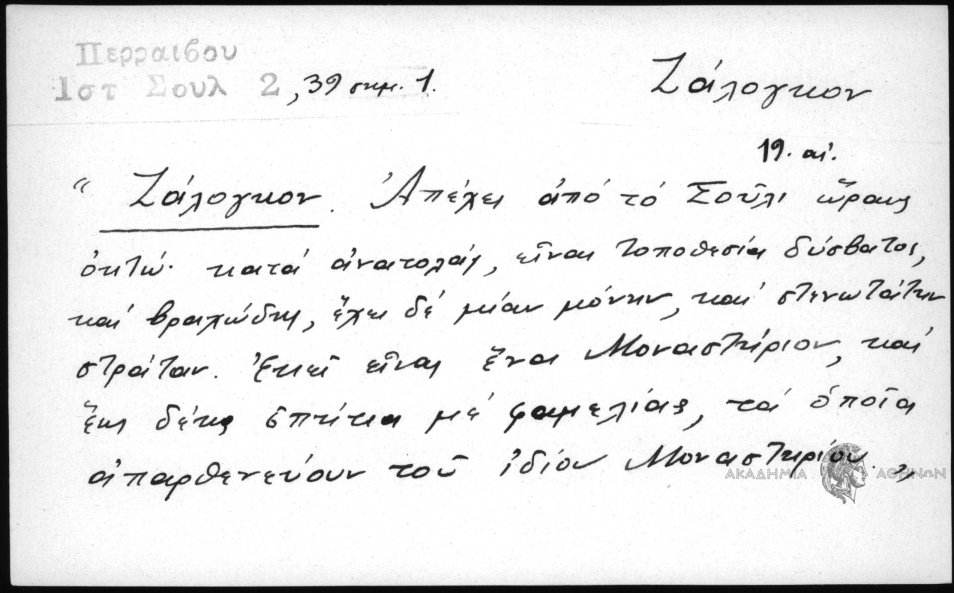 Περραιβου
Ιστ Σουλ 2, 39 σημ. 1.
Ζάλογκον
19. αἰ.
“ Ζάλογκον. Ἀπέχει ἀπό τό Σοῦλι ὥραις
ὀκτώ· κατά ἀνατολάς, εἶναι τοποθεσία δύσβατος,
καί βραχώδης, ἔχει δέ μίαν μόνην, καί στενωτάτην
στράταν. Ἐκεῖ εἶναι ἕνα Μοναστήριον, καί
ἕως δέκα σπήτια μέ φαμελίας, τά ὁποῖα
ἀπαρθενεύουν τοῦ ἰδίου Μοναστηρίου. ”
ΑΚΑΔΗΜΙΑ ΑΘΗΝΩΝ